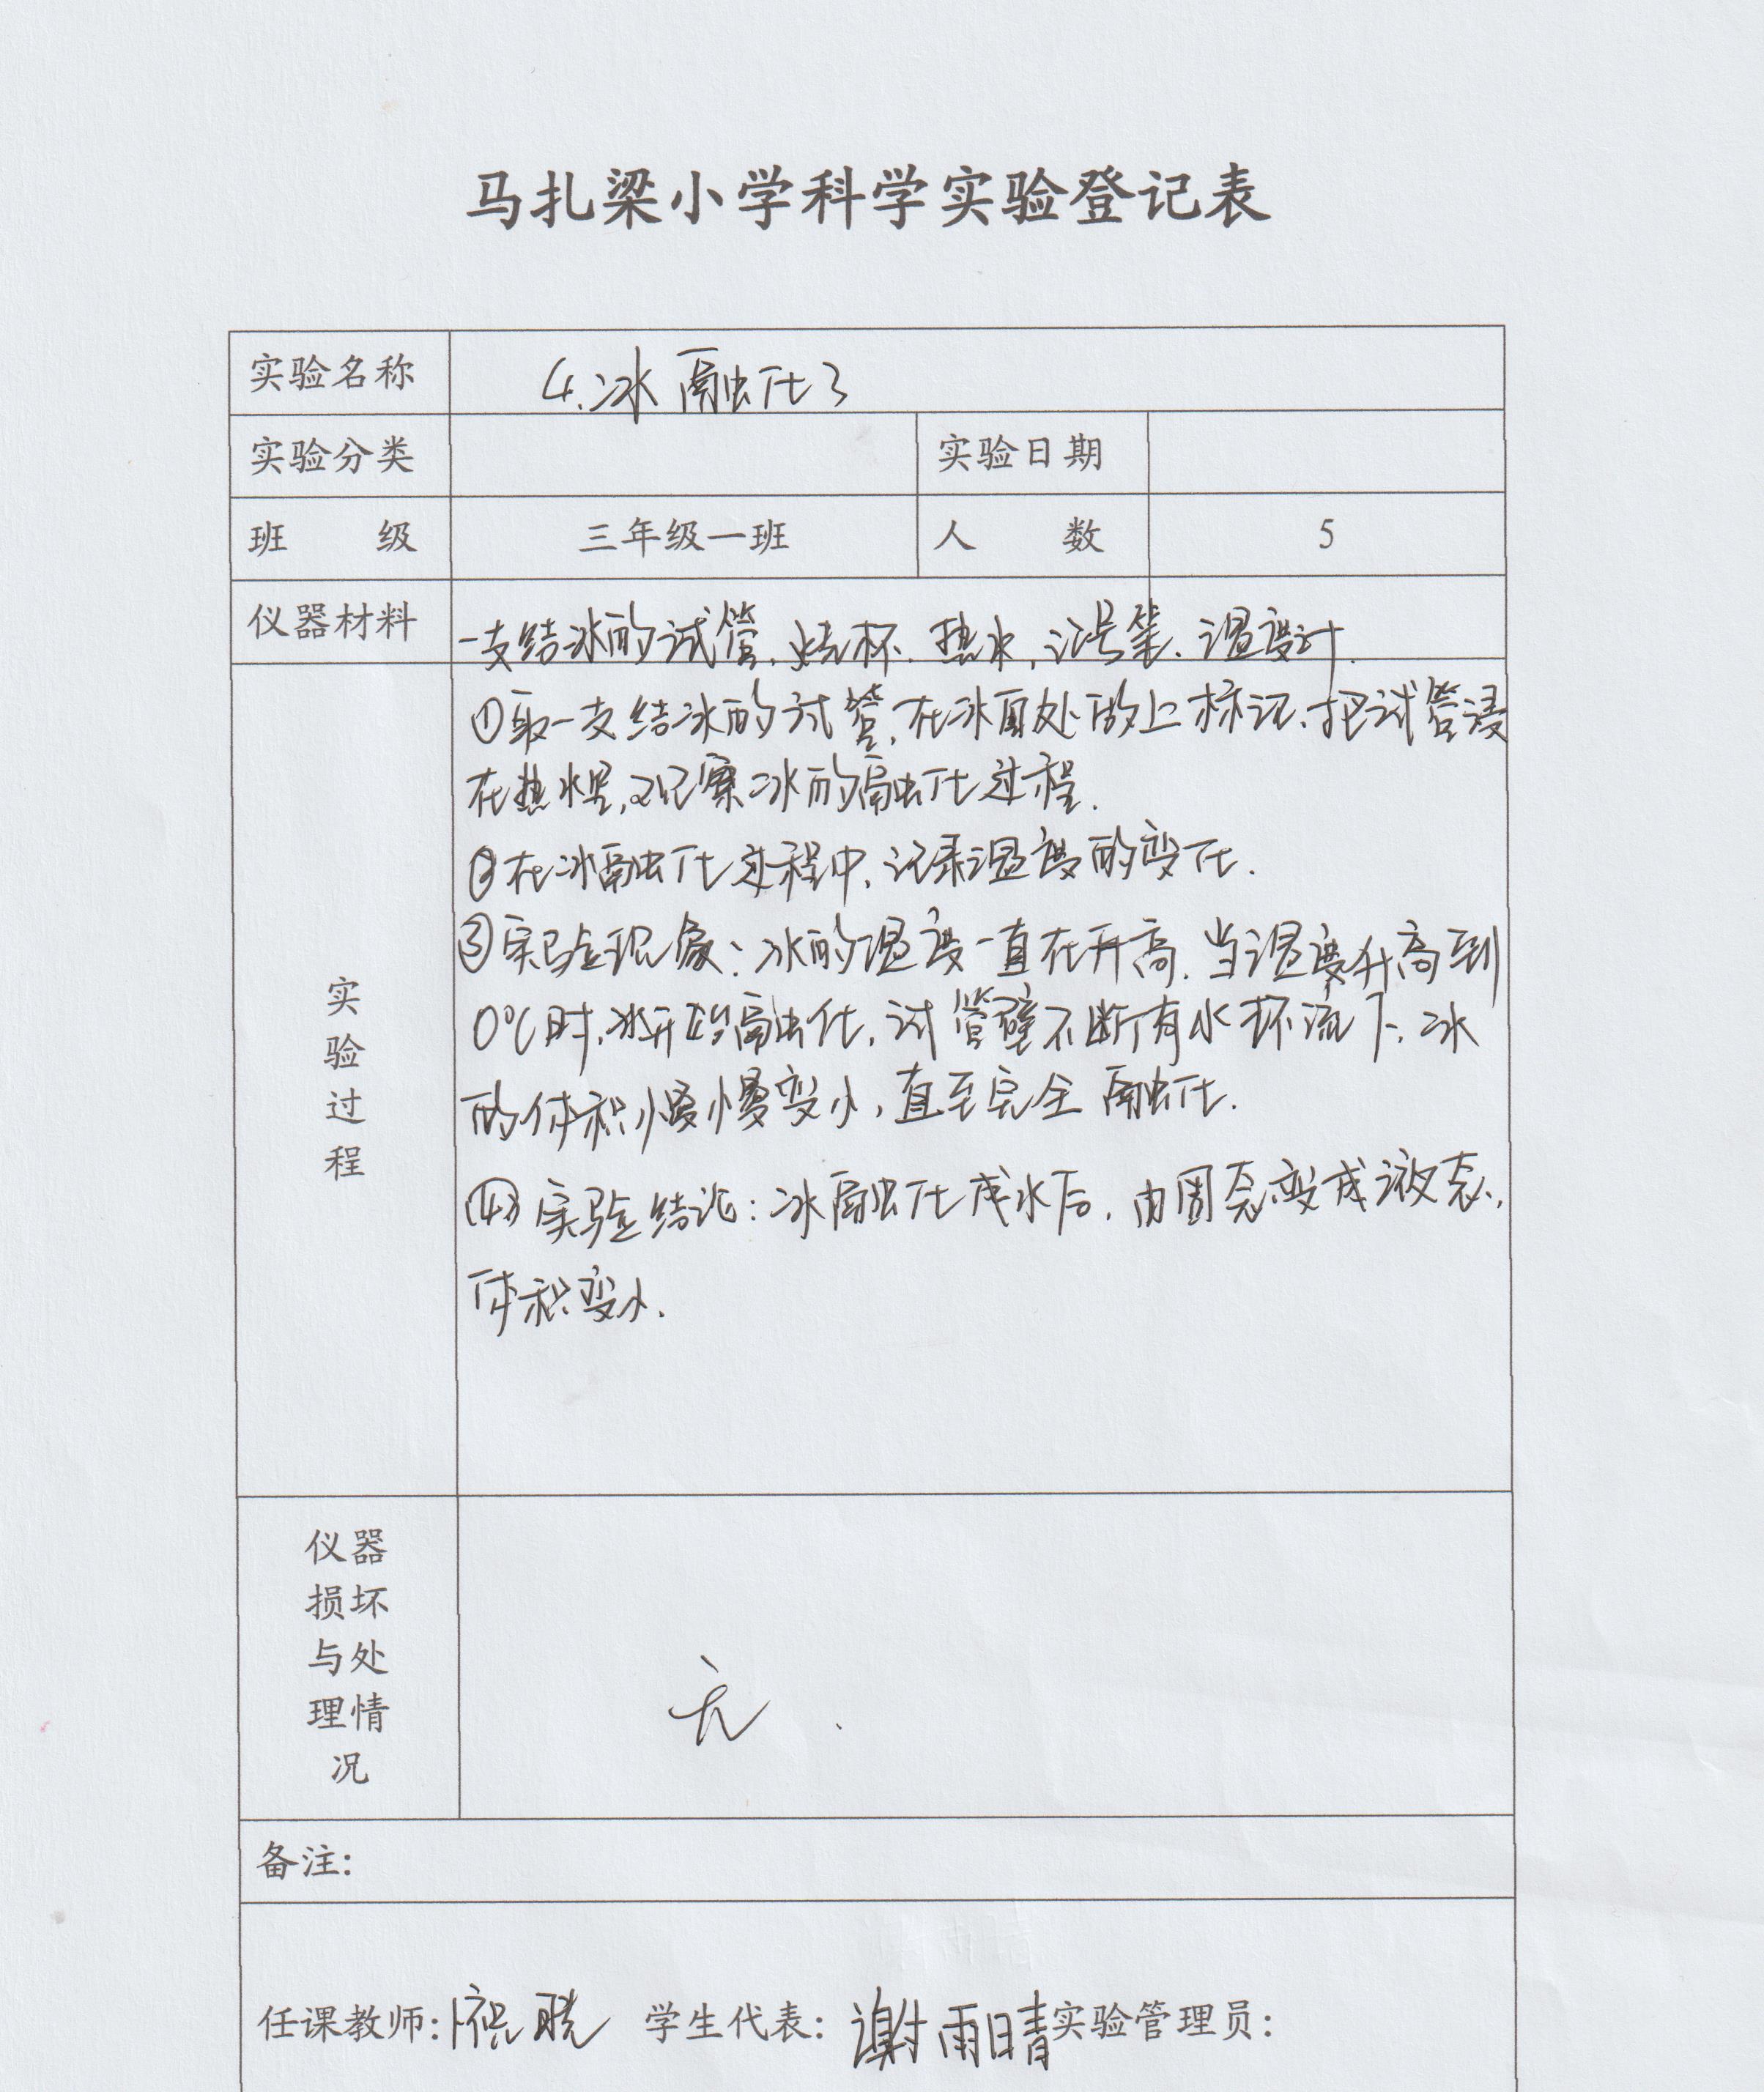 马扎梁小学科学实验登记表
实验名称 4.冰融化了
实验分类 实验日期
班 级 三年级一班 人 数 5
仪器材料 一支结冰的试管、烧杯、热水、记号笔、温度计.
实验过程
①取一支结冰的试管,在冰面处做上标记,把试管浸
在热水里,观察冰的融化过程.
②在冰融化过程中,记录温度的变化.
③实验现象:冰的温度一直在升高,当温度升高到
0℃时,冰开始融化,试管壁不断有水环流下,冰
的体积慢慢变小,直至完全融化.
④实验结论:冰融化成水后,由固态变成液态,
体积变小.
仪器
损坏
与处
理情
况
无.
备注:
任课教师: 学生代表:谢雨晴 实验管理员: